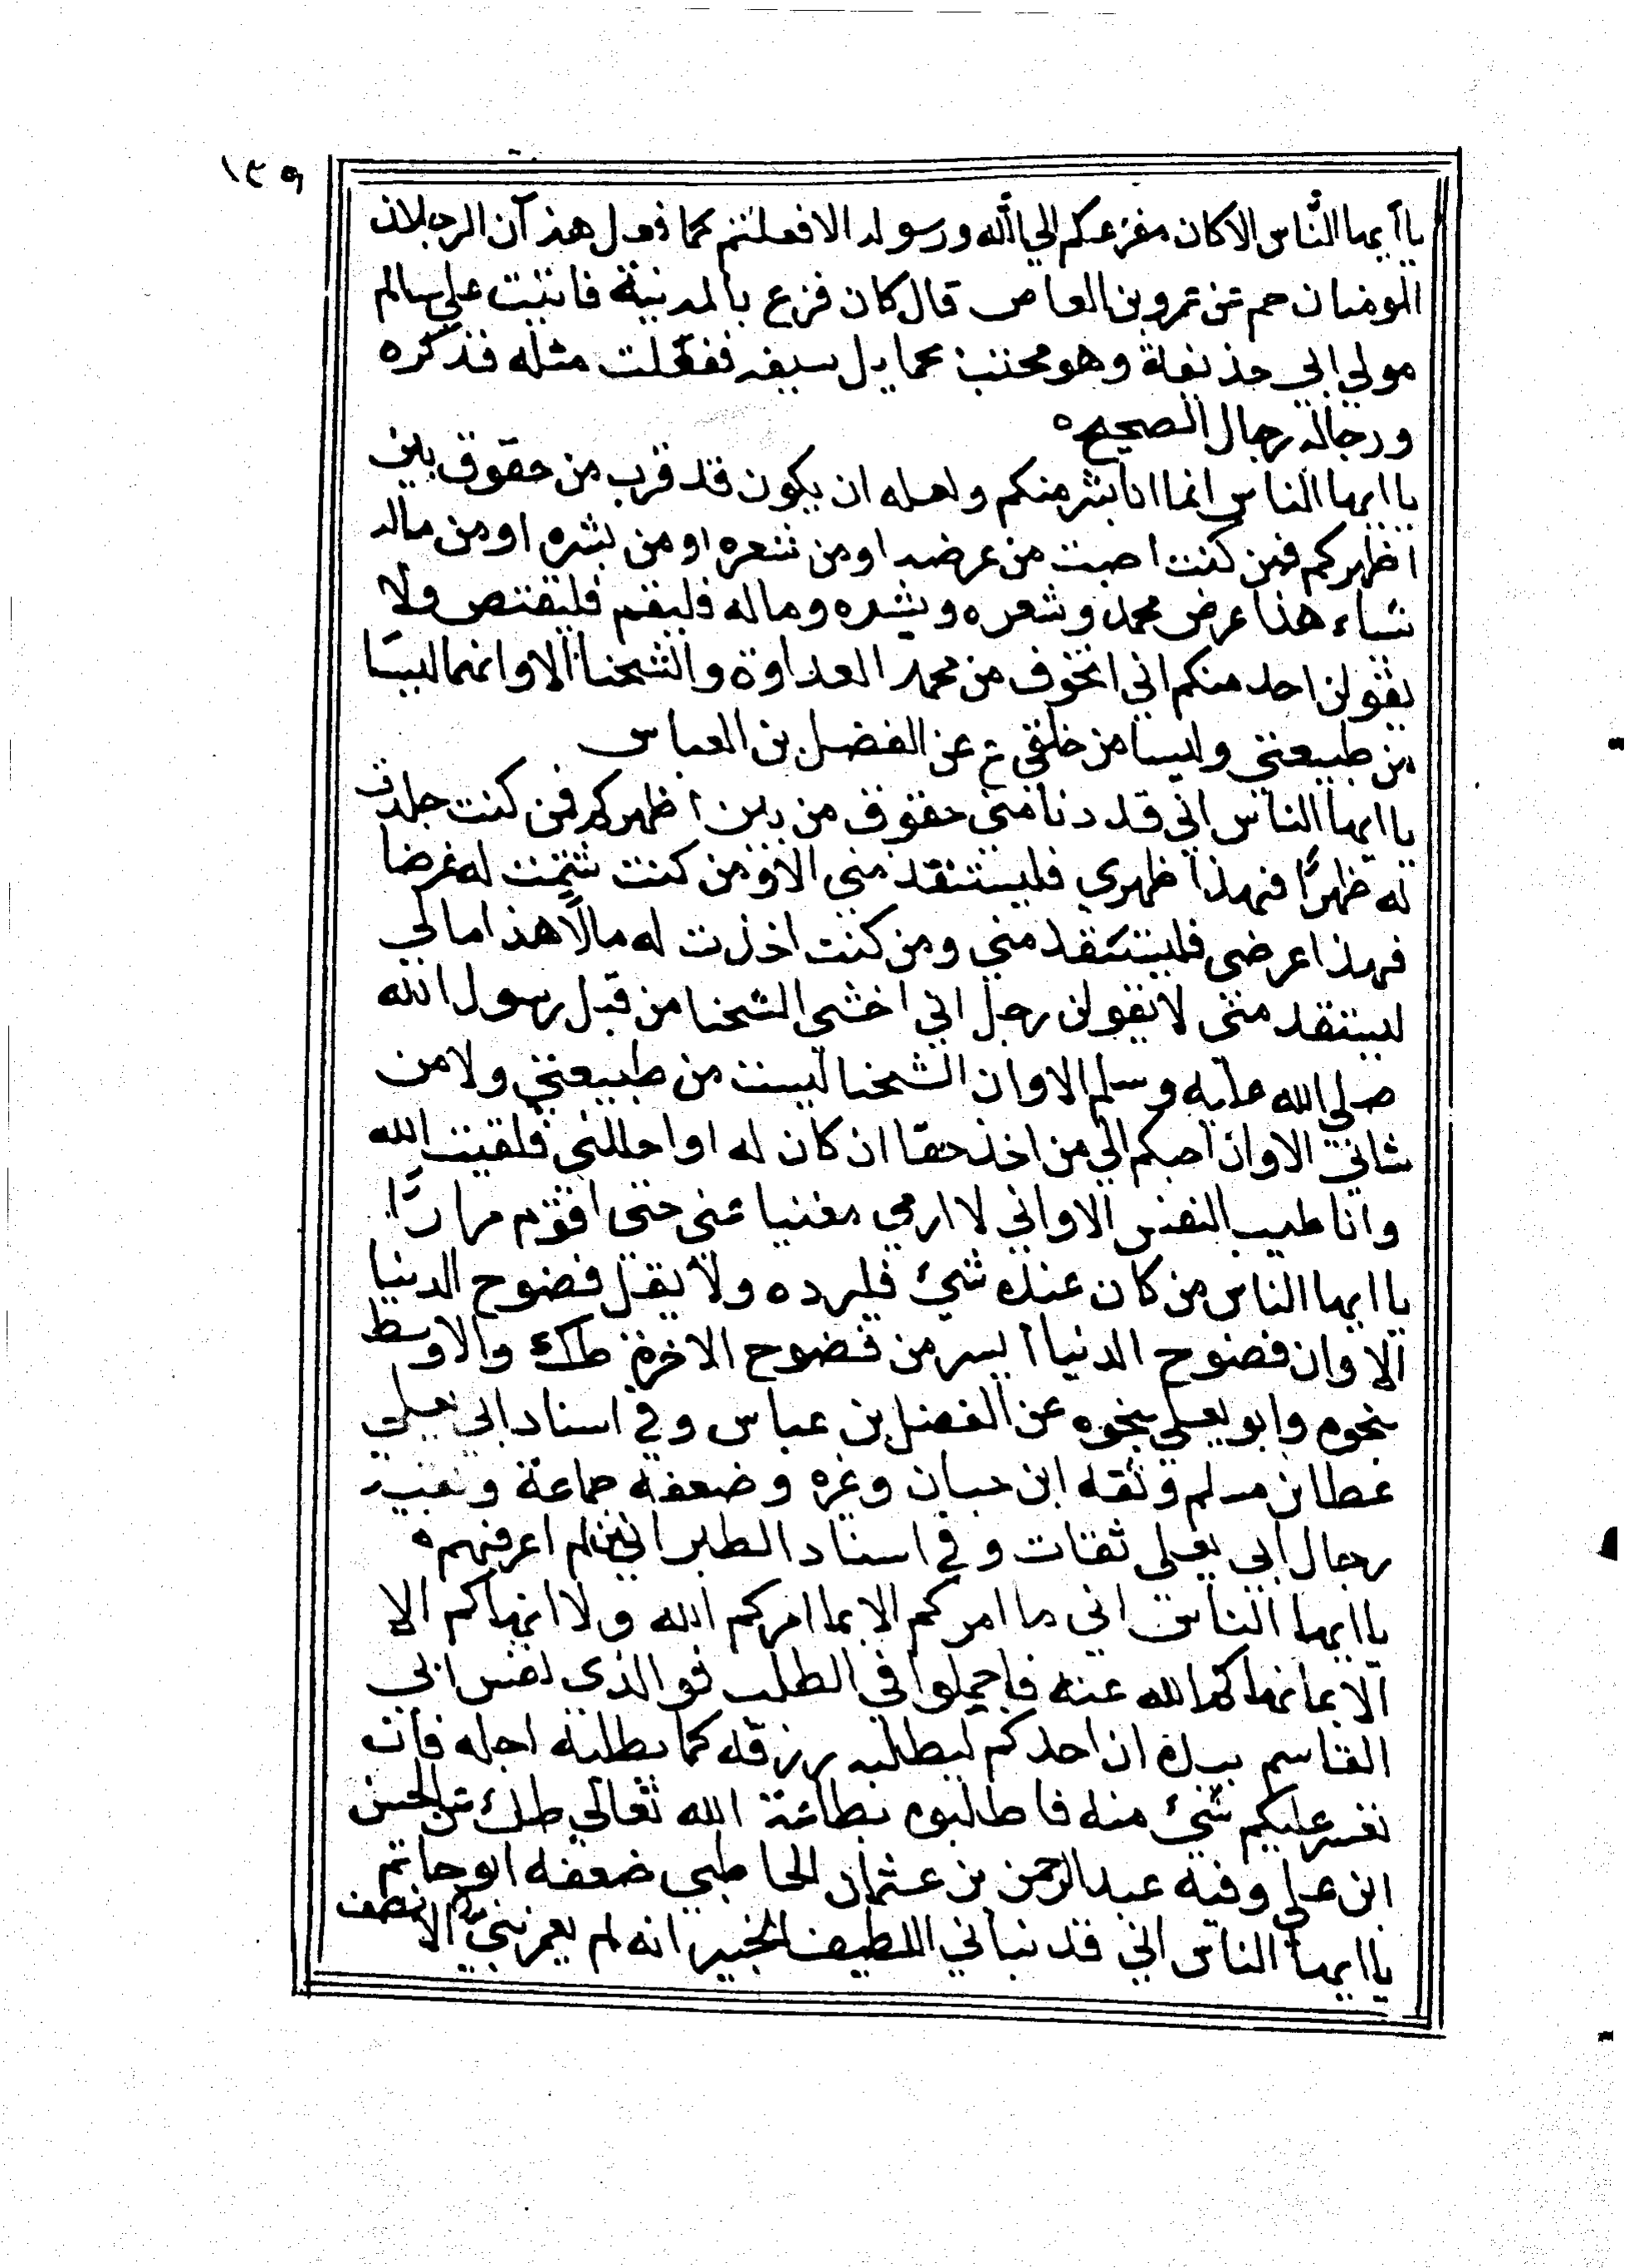 ١٣٩
ياأيها النّاس الاكان مفزعكم الي اللّه ورسوله الافعلتم كما فعل هذان الرجلان
المومنان حم عن عمرو بن العاص قال كان فزع بالمدينة فاتيت علي سالم
مولي ابي حذيفة وهو محتب بحمايل سيفه ففعلت مثله فذكره
ورجاله رجال الصحيح
يا ايها الناس انما انا بشر منكم ولعله ان يكون قد قرب من حقوق بين
اظهركم فمن كنت اصبت من عرضه او من شعره او من بشره او من ماله
شياء هذا عرض محمد وشعره وبشره وماله فليقم فليقتص ولا
يقولن احد منكم اني اتخوف من محمد العداوة والشحنا الا وانهما ليسا
من طبيعتي وليسا من خلقي ع عن الفضل بن العباس
يا ايها الناس اني قد دنا مني حقوق من بين اظهركم فمن كنت جلدت
له ظهرًا فهذا ظهري فليستقد مني الا ومن كنت شتمت له عرضا
فهذا عرضي فليستقد مني ومن كنت اخذت له مالًا هذا مالي
ليستقد مني لا يقولن رجل اني اخشي الشحنا من قبل رسول الله
صلي الله عليه وسلم الا وان الشحنا ليست من طبيعتي ولا من
شاني الا وان احبكم الي من اخذ حقا ان كان له او احللني فلقيت الله
وانا طيب النفس الا واني لا اري مغنيا عني حتى اقوم مرارًا
يا ايها الناس من كان عنده شيئ فليرده ولا يقل فضوح الدنيا
الا وان فضوح الدنيا أيسر من فضوح الاخرة طك والاوسط
بنحوه وابو يعلي بنحوه عن الفضل بن عباس وفي اسناد ابي يعلي
عطا بن مسلم وثقه ابن حبان وغره وضعفه جماعة وبقية
رجال ابي يعلى ثقات وفي اسناد الطبراني من لم اعرفهم
يا ايها الناس اني ما امركم الا بما امركم الله ولا انهاكم الا
الا بما نهاكم الله عنه فاجملوا في الطلب فوالذي نفس ابي
القاسم بيده ان احدكم ليطلبه رزقه كما يطلبه اجله فان
تعسر عليكم شيئ منه فاطلبوه بطاعة الله تعالي طك عن الحسن
ابن علي وفيه عبد الرحمن بن عثمان الحاطبي ضعفه ابو حاتم
يا ايها الناس اني قد نباني اللطيف الخبير انه لم يعمر نبيّ الا نصف